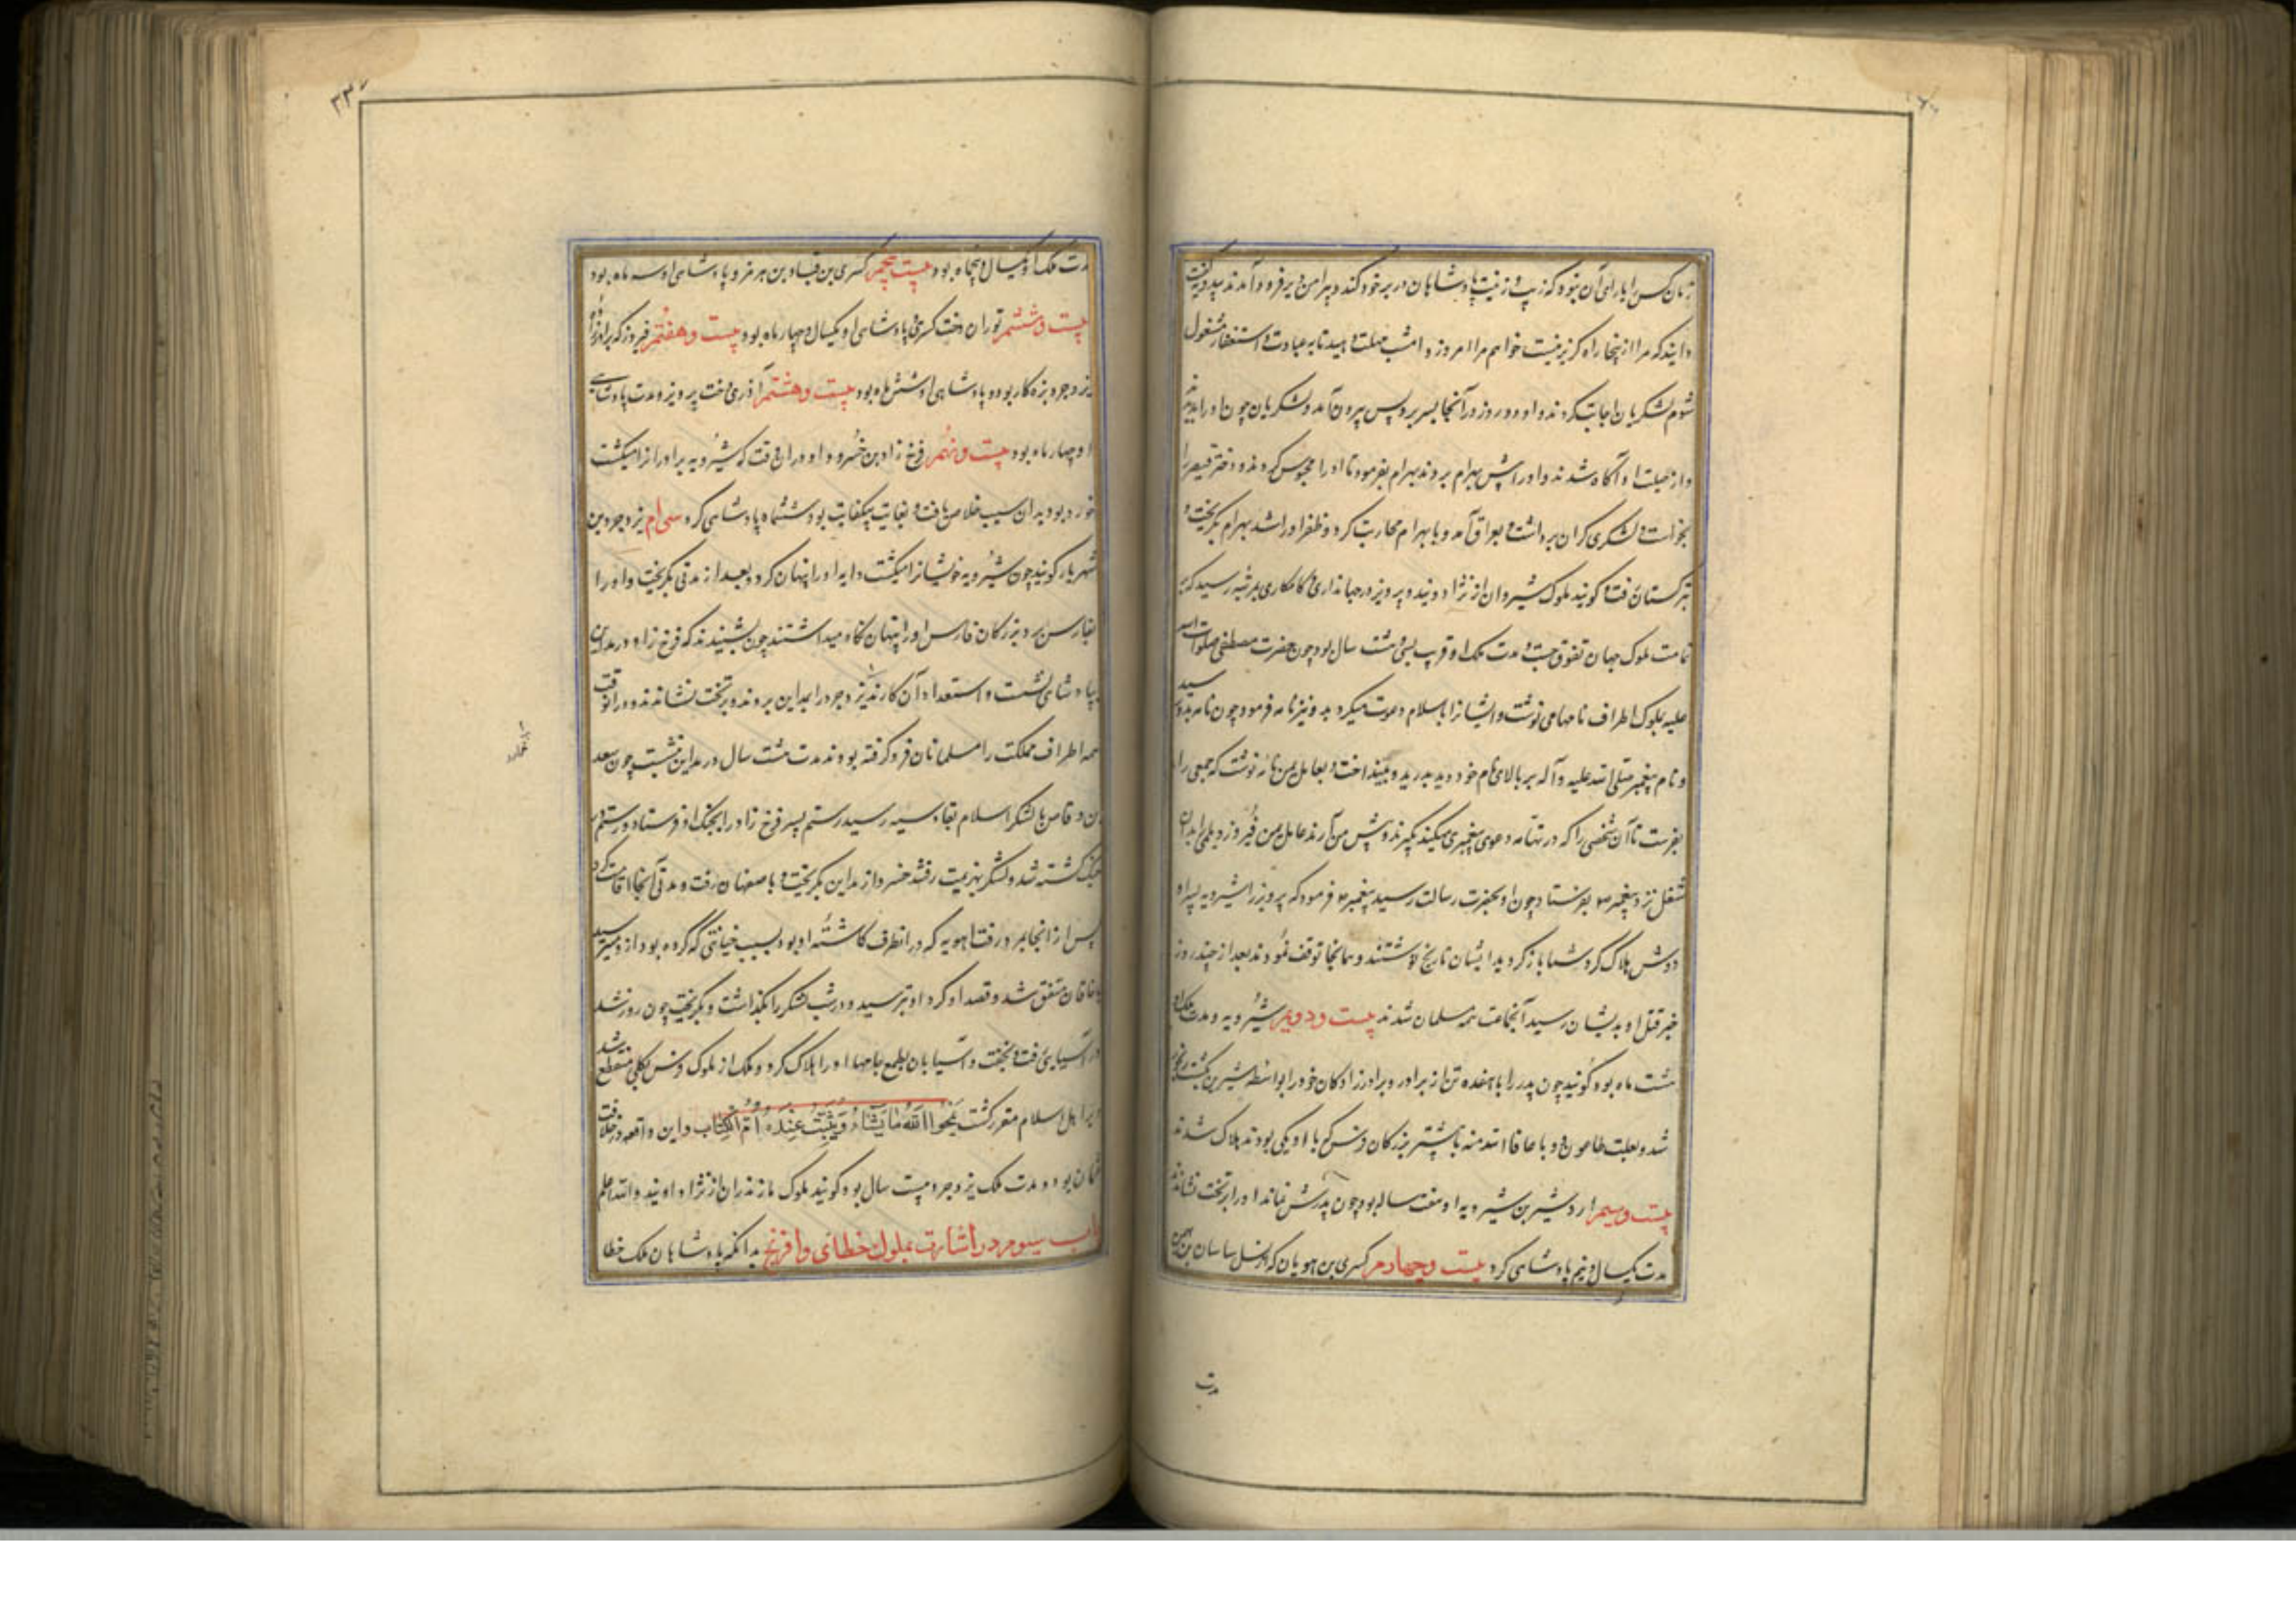 زمان کس را یارای آن نبود که زیب و زینت پادشاهان در بر خود کند و پیرامن دیر فرود آمدند بندویه گفت
دانید که مرا از اینجا راه گریز نیست خواهم مرا امروز و امشب مهلت دهید تا به عبادت و استغفار مشغول
شوم لشکریان اجابت کردند و او دو روز در آنجا بسر برد پس بیرون آمد و لشکریان چون او را بدیدند
و از حیلت او آگاه شدند و او را پیش بهرام بردند بهرام بفرمود تا او را محبوس کردند و دختر قیصر را
بخواست و لشکری گران برداشت و بعراق آمد و با بهرام محاربت کرد و ظفر او را شد بهرام بگریخت و
بترکستان رفت و گویند ملوک شیروان از نژاد ویند و پرویز در جهانداری و کامکاری بمرتبه رسید که بر
تمامت ملوک جهان تفوق جست و مدت ملک او قریب بسی و هشت سال بود چون حضرت مصطفی صلوات الله
علیه بملوک اطراف نامها می نوشت و ایشانرا باسلام دعوت میکرد بدو نیز نامه فرمود چون نامه بدو رسید
و نام پیغمبر صلی الله علیه و آله بر بالای نام خود دید بدرید و بینداخت و بعامل یمن نامه نوشت که جمعی را
بفرست تا آن شخصی را که در تهامه دعوی پیغمبری میکند بگیرند و پیش من آرند عامل یمن فیروز دیلمی را بدان
شغل نزد پیغمبر ص بفرستاد چون او بحضرت رسالت رسید پیغمبر ص فرمود که پرویز را شیرویه پسر او
دوش هلاک کرد شما باز گردید ایشان تاریخ نوشتند و همانجا توقف نمودند بعد از چند روز
خبر قتل او بدیشان رسید آنجماعت همه مسلمان شدند بیست و دویم شیرویه و مدت ملک او
هشت ماه بود گویند چون پدر را با هفده تن از برادر و برادرزادگان خود را بواسطه شیرین بکشت رنجور
شد و بعلت طاعون و وبا عافانا الله منه با بیشتر بزرگان فرس که با او یکی بودند هلاک شدند
بیست و سیم اردشیر بن شیرویه او هفت ساله بود چون پدرش نماند او را بر تخت نشاندند
مدت یکسال و نیم پادشاهی کرد بیست و چهارم کسری بن هویان که از نسل ساسان بن بهمن
مدت
مدت ملک او یکسال و پنجاه بود بیست و پنجم کسری بن قباد بن هرمز و پادشاهی او سه ماه بود
بیست و ششم توران دخت کسری پادشاهی او یکسال و چهار ماه بود بیست و هفتم فیروز که برادرزاده
یزدجرد بزه کار بود و پادشاهی او شش ماه بود بیست و هشتم آذری دخت پرویز و مدت پادشاهی
او چهار ماه بود بیست و نهم فرخ زاد بن خسرو و او در آن وقت که شیرویه برادرانرا میکشت
خورد بود بدان سبب خلاص یافت و بغایت بیکفایت بود ششماه پادشاهی کرد سی ام یزدجرد بن
شهریار گویند چون شیرویه خویشانرا میکشت دایه او را پنهان کرد و بعد از مدتی بگریخت و او را
بفارس برد بزرگان فارس او را پنهان نگاه میداشتند چون بشنیدند که فرخ زاد در مداین
بپادشاهی نشست و استعداد آن کار ندارد یزدجرد را بمداین بردند و بر تخت نشاندند و در آن وقت
همه اطراف مملکت را مسلمانان فرو گرفته بودند مدت هشت سال در مداین نشست چون سعد
بن وقاص با لشکر اسلام بقادسیه رسید رستم پسر فرخ زاد را بجنک او فرستاد و رستم در
جنگ کشته شد و لشکر بهزیمت رفتند خسرو از مداین بگریخت و باصفهان رفت و مدتی آنجا اقامت کرد
پس از آنجا بمرو رفت ماهویه که در آنطرف گماشته او بود بسبب خیانتی که کرده بود از وی میترسید
با خاقان متفق شد و قصد او کرد او بترسید و در شب لشکر را بگذاشت و بگریخت چون روز شد
در آسیایی رفت و بخفت و آسیابان بطمع جامها او را هلاک کرد و ملک از ملوک فرس بکلی منقطع شد
و بر اهل اسلام مقرر گشت یَمْحُوا اللّٰهُ مٰا یَشٰاءُ وَ یُثْبِتُ وَ عِنْدَهُ اُمُّ الکِتٰاب و این واقعه در خلافت
عثمان بود و مدت ملک یزدجرد بیست سال بود گویند ملوک مازندران از نژاد اویند والله اعلم
باب سیوم در اشارت بملوک خطای و افرنج بدانکه پادشاهان ملک خطا